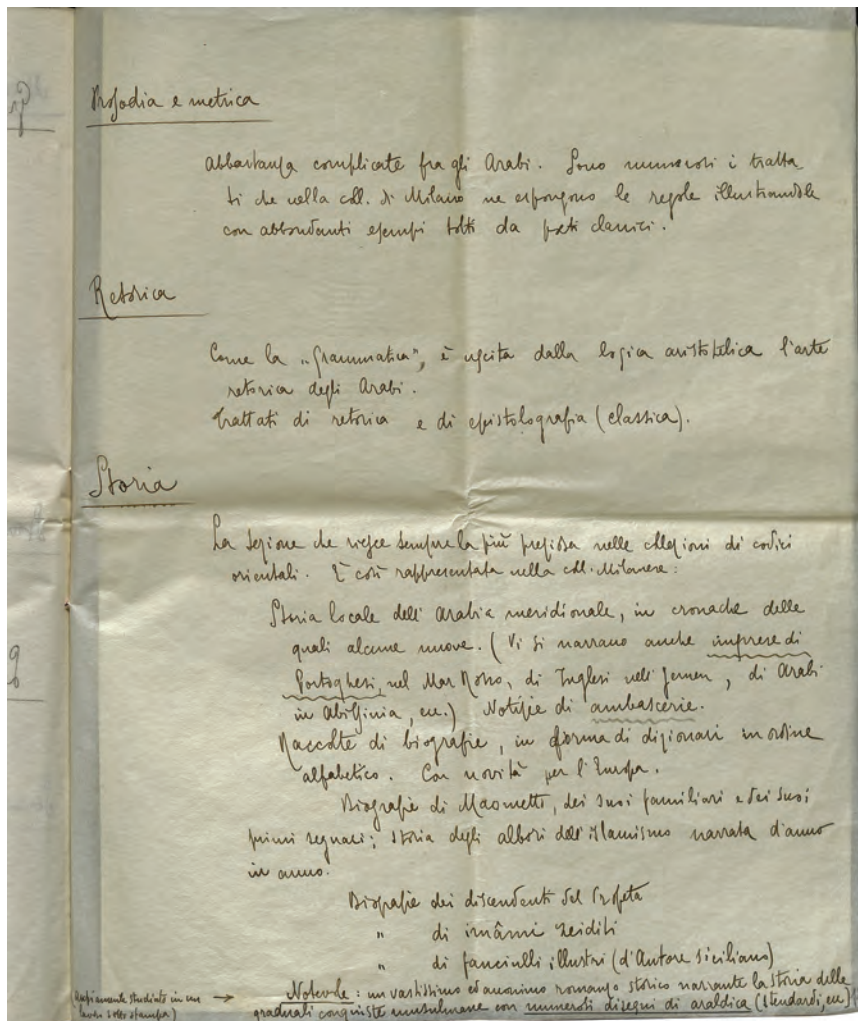 Prosodia e metrica
abbastanza complicate fra gli Arabi. Sono numerosi i tratta-
ti che nella coll. di Milano ne espongono le regole illustrandole
con abbondanti esempi tolti da poeti classici.
Retorica
Come la „grammatica", è uscita dalla logica aristotelica l'arte
retorica degli Arabi.
Trattati di retorica e di epistolografia (classica).
Storia
La sezione che riesce sempre la più preziosa nelle collezioni di codici
orientali. È così rappresentata nella coll. Milanese:
Storia locale dell'Arabia meridionale, in cronache delle
quali alcune nuove. (Vi si narrano anche imprese di
Portoghesi, nel Mar Rosso, di Inglesi nell'Jemen, di Arabi
in Abissinia, ecc.) Notizie di ambascerie.
Raccolte di biografie, in forma di dizionari in ordine
alfabetico. Con novità per l'Europa.
Biografie di Maometto, dei suoi familiari e dei suoi
primi seguaci; storia degli albori dell'islamismo narrata d'anno
in anno.
Biografie dei discendenti del Profeta
„ di imâmi zeiditi
„ di fanciulli illustri (d'Autore siciliano)
(Ampiamente studiato in un
lavoro sotto stampa) →
Notevole: un vastissimo ed anonimo romanzo storico narrante la storia delle
graduali conquiste musulmane con numerosi disegni di araldica (stendardi, ecc)